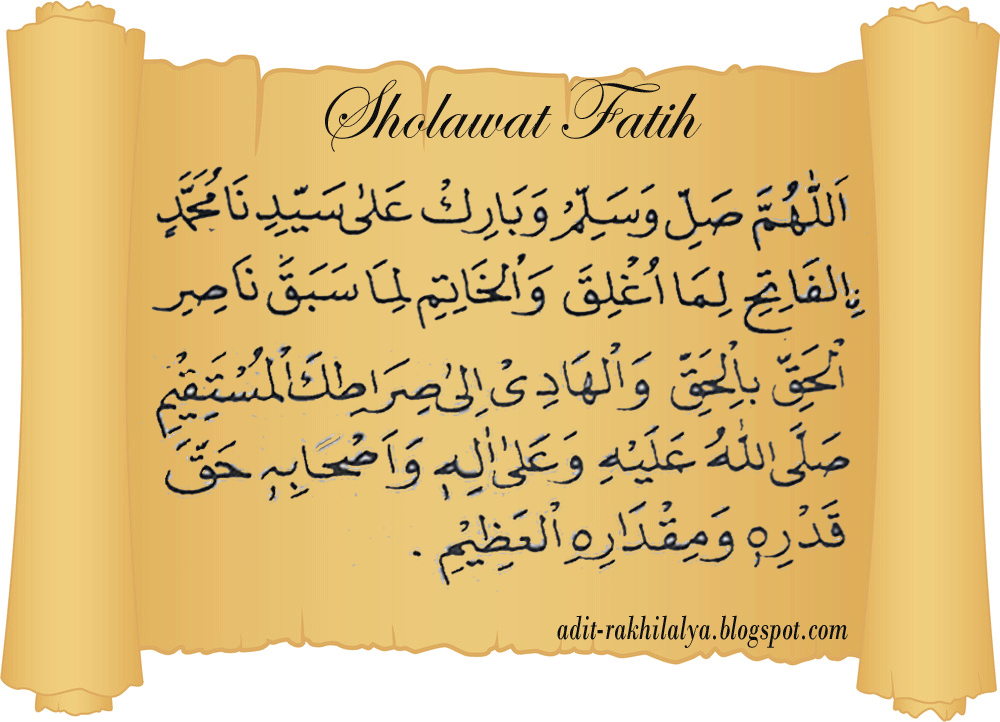 Sholawat Fatih
اَللّٰهُمَّ صَلِّ وَسَلِّمْ وَبَارِكْ عَلٰى سَيِّدِنَا مُحَمَّدٍ
نِالْفَاتِحِ لِمَا اُغْلِقَ وَالْخَاتِمِ لِمَا سَبَقَ نَاصِرِ
الْحَقِّ بِالْحَقِّ وَالْهَادِيْ اِلٰى صِرَاطِكَ الْمُسْتَقِيْمِ
صَلَّى اللّٰهُ عَلَيْهِ وَعَلٰى اٰلِهٖ وَاَصْحَابِهٖ حَقَّ
قَدْرِهٖ وَمِقْدَارِهِ الْعَظِيْمِ .
adit-rakhilalya.blogspot.com